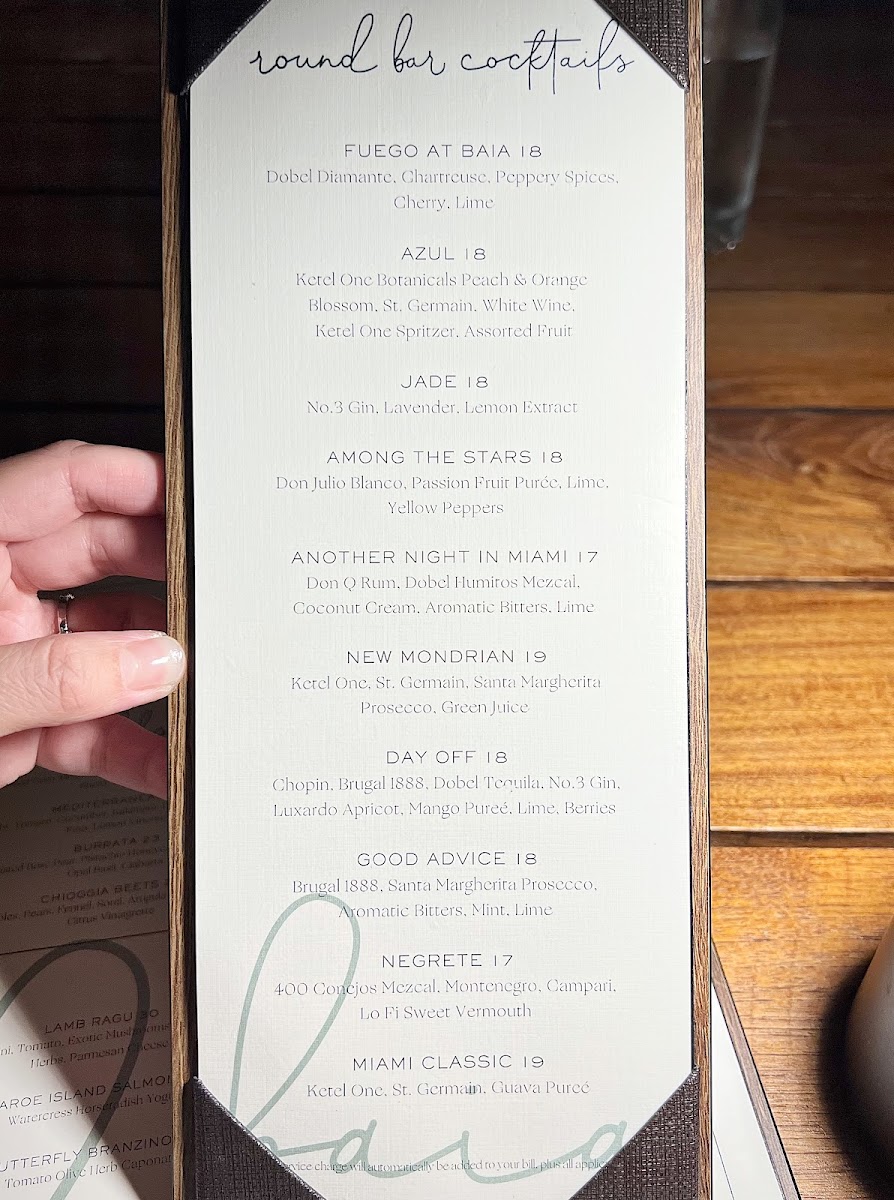 round bar cocktails
FUEGO AT BAIA 18
Dobel Diamante, Chartreuse, Peppery Spices,
Cherry, Lime
AZUL 18
Ketel One Botanicals Peach & Orange
Blossom, St. Germain, White Wine,
Ketel One Spritzer, Assorted Fruit
JADE 18
No.3 Gin, Lavender, Lemon Extract
AMONG THE STARS 18
Don Julio Blanco, Passion Fruit Purée, Lime,
Yellow Peppers
ANOTHER NIGHT IN MIAMI 17
Don Q Rum, Dobel Humitos Mezcal,
Coconut Cream, Aromatic Bitters, Lime
NEW MONDRIAN 19
Ketel One, St. Germain, Santa Margherita
Prosecco, Green Juice
DAY OFF 18
Chopin, Brugal 1888, Dobel Tequila, No.3 Gin,
Luxardo Apricot, Mango Pureé, Lime, Berries
GOOD ADVICE 18
Brugal 1888, Santa Margherita Prosecco,
Aromatic Bitters, Mint, Lime
NEGRETE 17
400 Conejos Mezcal, Montenegro, Campari,
Lo Fi Sweet Vermouth
MIAMI CLASSIC 19
Ketel One, St. Germain, Guava Pureé
baia
service charge will automatically be added to your bill, plus all
BURRATA 23
CHIOGGIA BEETS
Citrus Vinaigrette
LAMB RAGU 30
Tomato, Exotic Mushrooms
Herbs, Parmesan Cheese
ISLAND SALMO
Watercress Horseradish
BRANZINO
Tomato Olive Herb